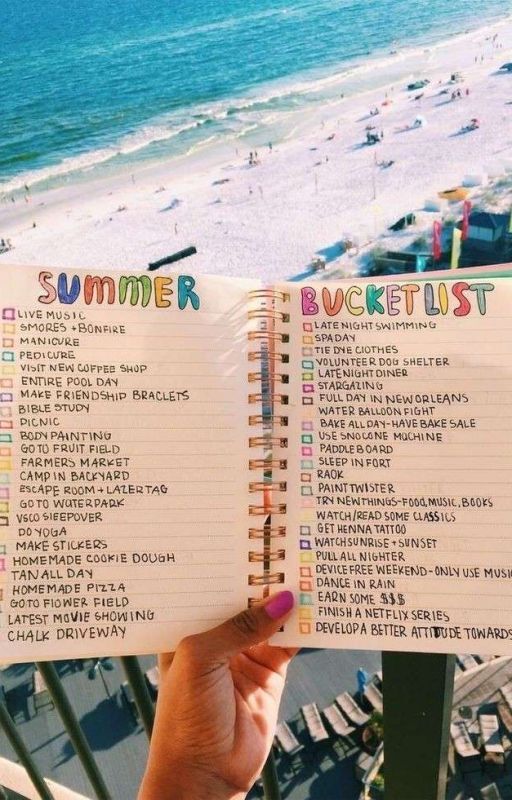 SUMMER
LIVE MUSIC
SMORES + BONFIRE
MANICURE
PEDICURE
VISIT NEW COFFEE SHOP
ENTIRE POOL DAY
MAKE FRIENDSHIP BRACLETS
BIBLE STUDY
PICNIC
BODY PAINTING
GO TO FRUIT FIELD
FARMERS MARKET
CAMP IN BACKYARD
ESCAPE ROOM + LAZER TAG
GO TO WATERPARK
VSCO SLEEPOVER
DO YOGA
MAKE STICKERS
HOMEMADE COOKIE DOUGH
TAN ALL DAY
HOMEMADE PIZZA
GO TO FLOWER FIELD
LATEST MOVIE SHOWING
CHALK DRIVEWAY
BUCKET LIST
LATE NIGHT SWIMMING
SPA DAY
TIE DYE CLOTHES
VOLUNTEER DOG SHELTER
LATE NIGHT DINER
STARGAZING
FULL DAY IN NEW ORLEANS
WATER BALLOON FIGHT
BAKE ALL DAY - HAVE BAKE SALE
USE SNOCONE MUCHINE
PADDLE BOARD
SLEEP IN FORT
RAOK
PAINT TWISTER
TRY NEW THINGS - FOOD, MUSIC, BOOKS
WATCH/READ SOME CLASSICS
GET HENNA TATTOO
WATCH SUNRISE + SUNSET
PULL ALL NIGHTER
DEVICE FREE WEEKEND - ONLY USE MUSIC
DANCE IN RAIN
EARN SOME $$$
FINISH A NETFLIX SERIES
DEVELOP A BETTER ATTITUDE TOWARDS